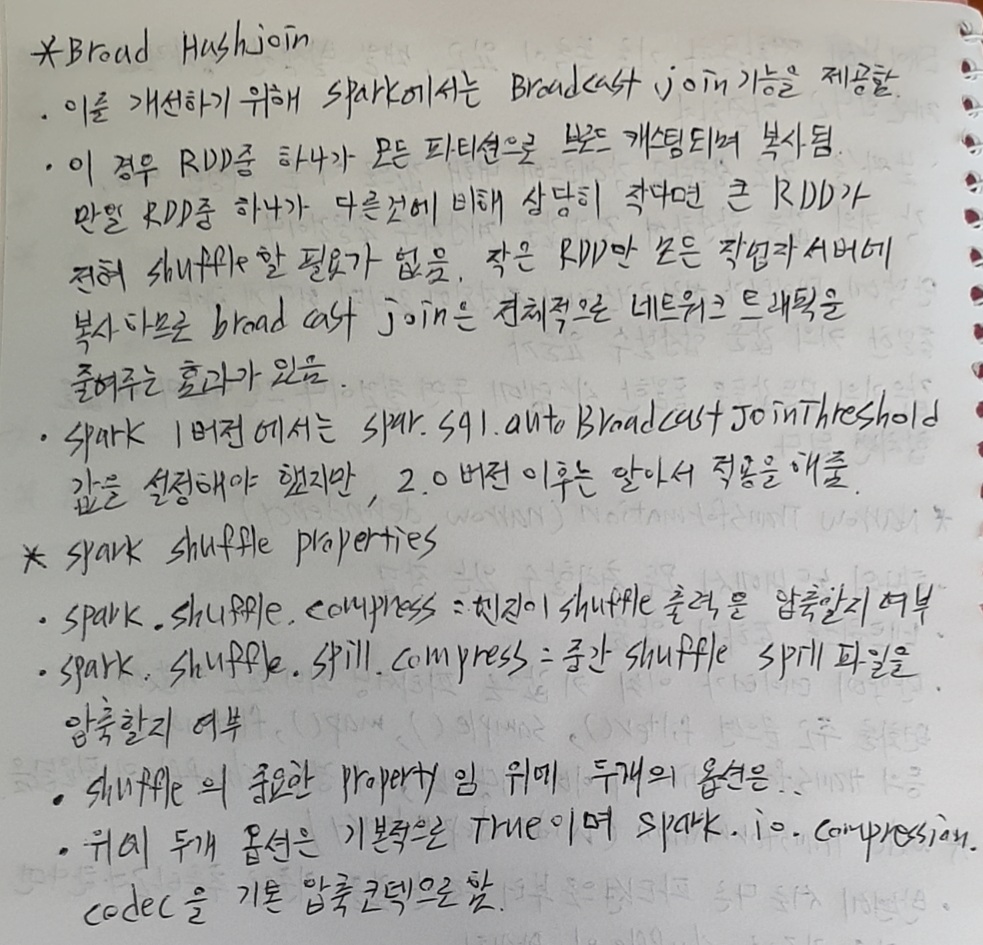 *Broad Hashjoin
· 이를 개선하기 위해 spark에서는 Broadcast join 기능을 제공함.
· 이 경우 RDD중 하나가 모든 파티션으로 브로드 캐스팅되며 복사됨.
만일 RDD중 하나가 다른것에 비해 상당히 작다면 큰 RDD가
전혀 shuffle 할 필요가 없음. 작은 RDD만 모든 작업자 서버에
복사 하므로 broad cast join은 전체적으로 네트워크 트래픽을
줄여주는 효과가 있음.
· spark 1버전에서는 spar.sql.autoBroadcastJoinThreshold
값을 설정해야 했지만, 2.0버전 이후는 알아서 적용을 해줌.
* spark shuffle properties
· spark.shuffle.compress = 엔진이 shuffle 출력을 압축할지 여부
· spark.shuffle.spill.compress = 중간 shuffle spill 파일을
압축할지 여부
· shuffle의 중요한 property 임 위에 두개의 옵션은..
· 위에 두개 옵션은 기본적으로 True이며 spark.io.compression.
codec을 기본 압축코덱으로 함.